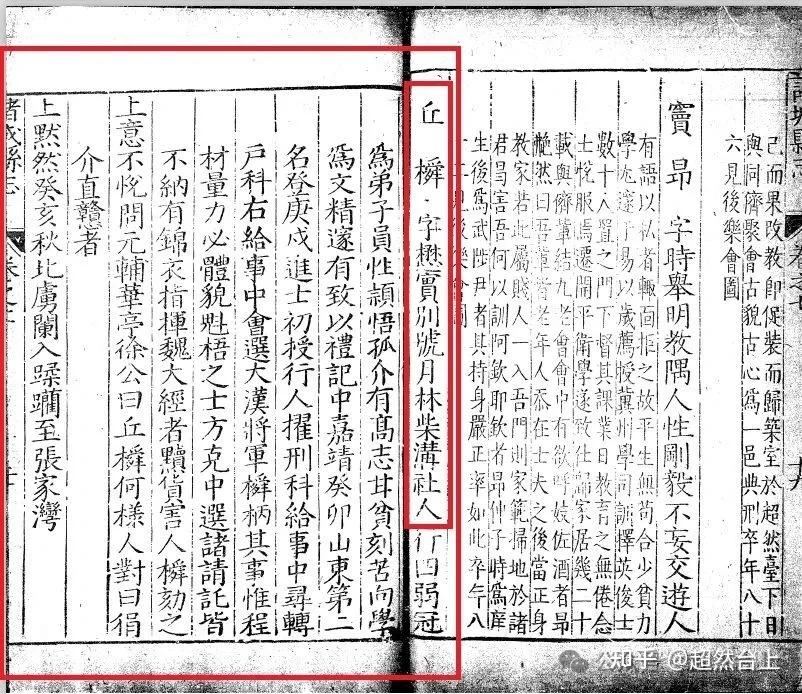 諸城縣志
卷之七
十九
己而果改教即促裝而歸築室於超然臺下日
與同儕聚會古貌古心爲一邑典刑卒年八十
六見後樂會圖
竇昂字時舉明教隅人性剛毅不妄交遊人
有語以私者輒面拒之故平生無苟合少貧力
學尤邃于易以歲薦授冀州學司訓擇英俊士
數十人置之門下督其課業日教育之無倦念
士悅服焉遷開平衛學遂致仕歸家居幾二十
載與儕輩結九老會會中有欲呼妓佐酒者昂
艴然曰吾輩皆老年人忝在士夫之後當正身
教家若此屬賤人一入吾門則家範掃地於諸
君昌害吾何以訓阿欽耶欽者昂仲子時爲庠
生後爲武陟尹者其持身嚴正率如此卒年八
十 見後樂會圖
丘橓字懋實別號月林柴溝社人行四弱冠
爲弟子員性頴悟孤介有髙志甘貧刻苦向學
爲文精邃有致以禮記中嘉靖癸卯山東第二
名登庚戌進士初授行人擢刑科給事中尋轉
戶科右給事中會選大漢將軍橓柄其事惟程
材量力必體貌魁梧之士方克中選諸請託皆
不納有錦衣指揮魏大經者黷貨害人橓劾之
上意不悅問元輔華亭徐公曰丘橓何様人對曰狷
介直戇者
上黙然癸亥秋北虜闌入蹂躪至張家灣
諸城縣志
卷之七
二十
知乎 @超然台上